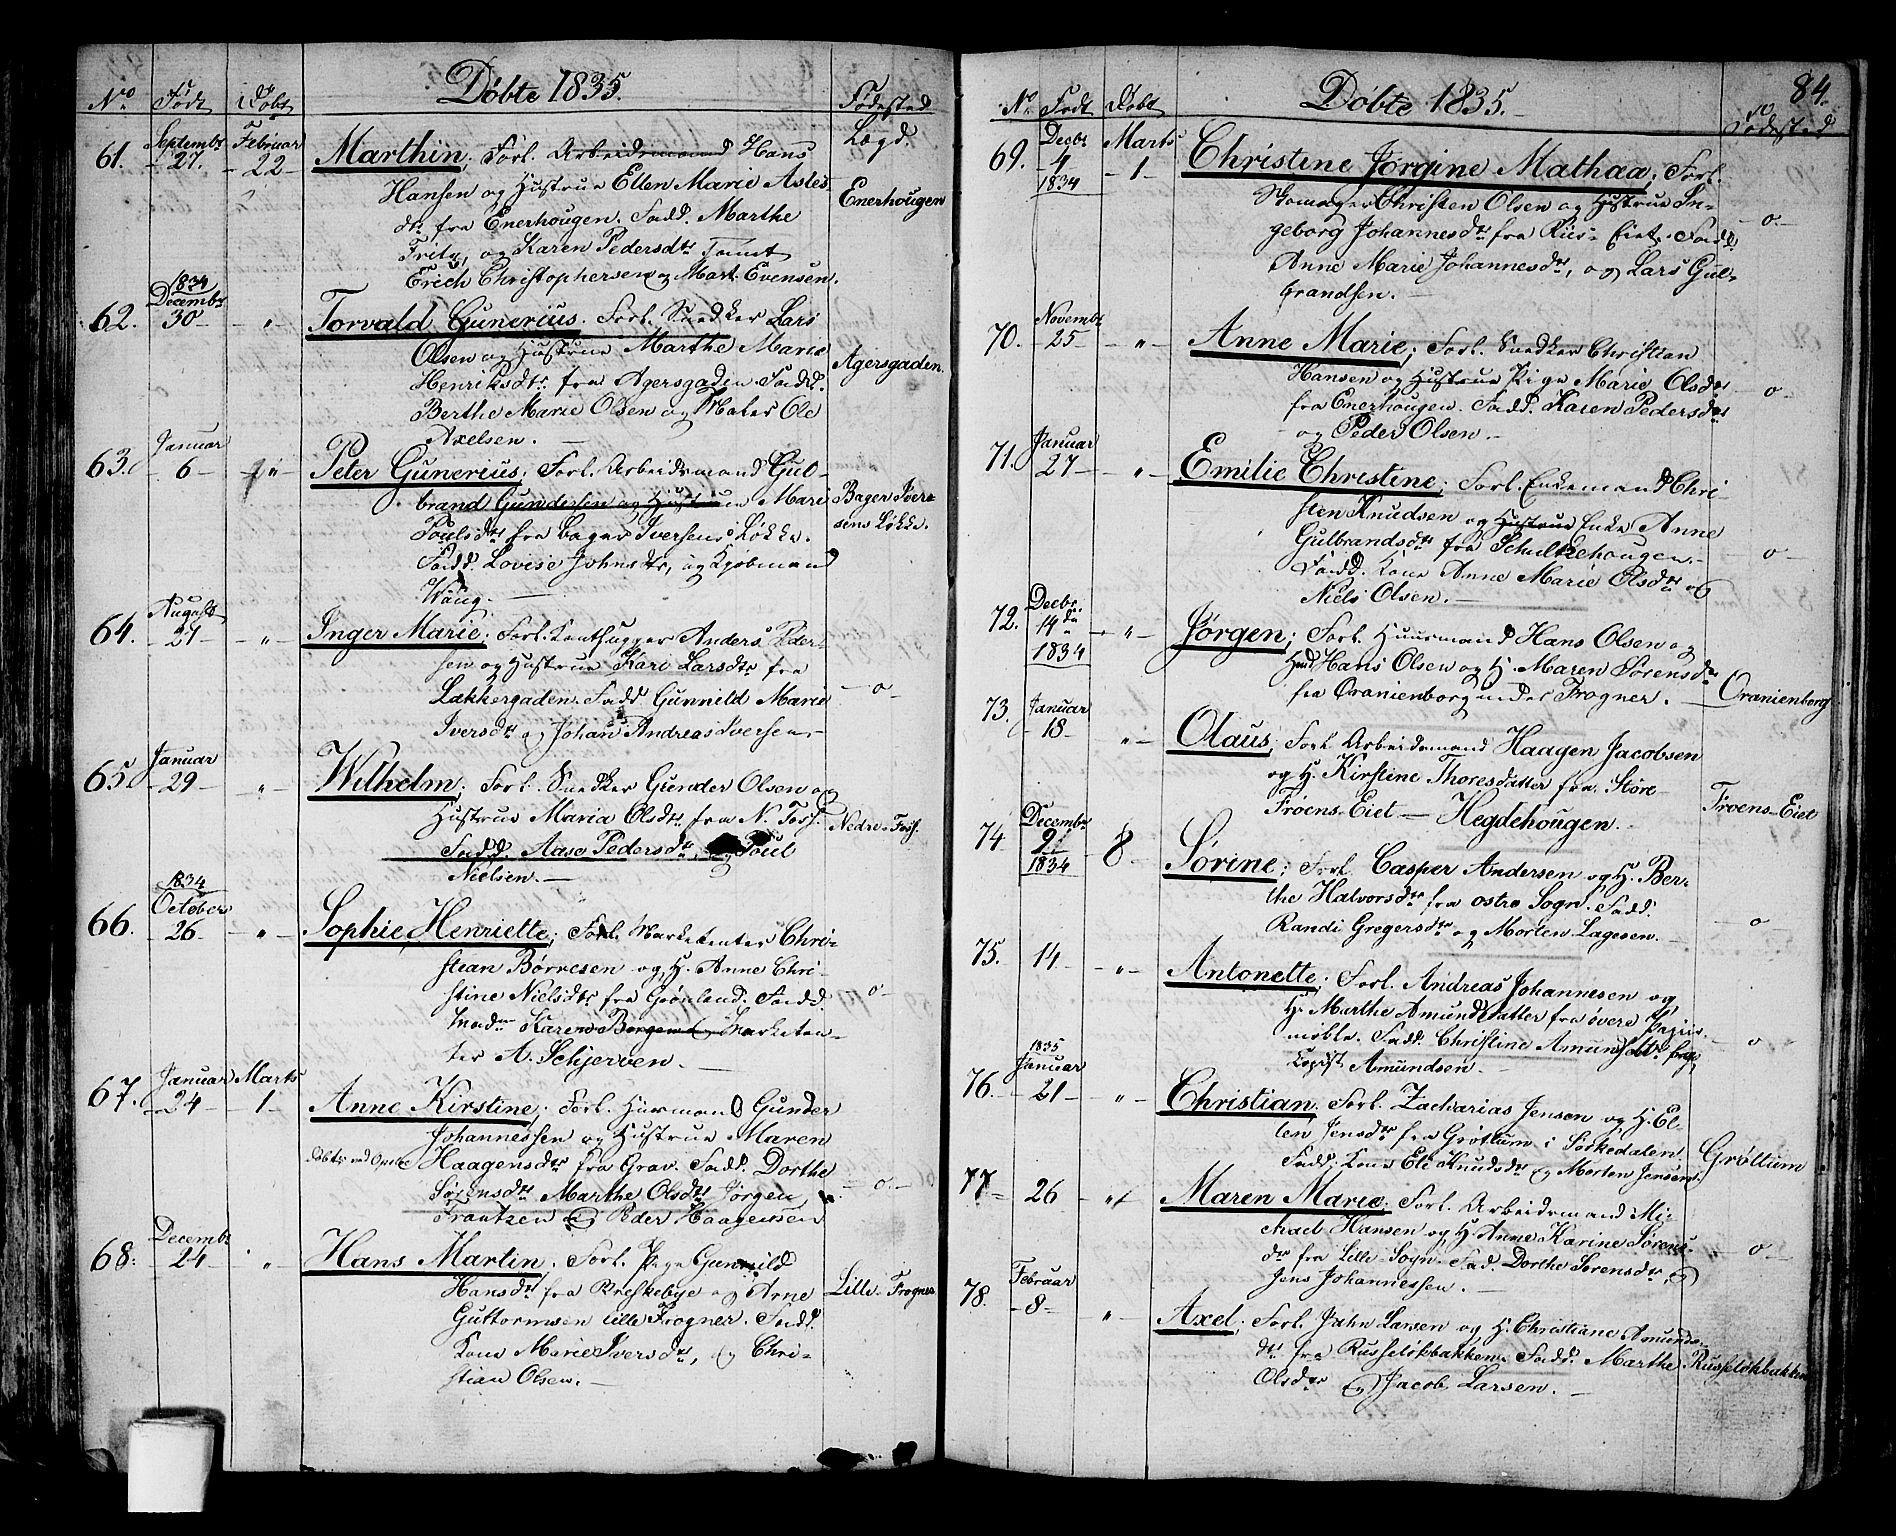 Døbte 1835.
No Født Døbt Fødested
61. Septembr 27. Februar 22 Marthin; Forl. Arbeidsmand Hans Lægd.
Hansen og Hustrue Ellen Marie Asles
dtr fra Enerhougen. Fadd. Marthe Enerhougen
Fritz, og Karen Pedersdtr samt
Erich Christophersen og Mart. Evensen.
62. 1834 Decembr 30 " Torvald Gunerius. Forl. Snedker Lars
Olsen og Hustrue Marthe Marie Agersgaden.
Henriksdtr fra Agersgaden. Fadd.
Berthe Marie Olsen og Maler Ole
Axelsen.
63. Januar 6 " Peter Gunerius; Forl. Arbeidsmand Gul-
brand Gundersen og Hustrue Mari Bager Iver-
Poulsdtr fra Bager Iversens Løkke. sens Løkke.
Fadd. Lovise Johnsdtr, og Kjøbmand
Waug.
64. August 21 " Inger Marie. Forl. Anders Peder-
sen og Hustrue Kari Larsdtr fra
Lakkergaden. Fadd Gunnild Marie o
Iversdtr og Johan Andreas Iversen
65. Januar 29 " Wilhelm; Forl. Snedker Gunder Olsen og
Hustrue Maria Olsdtr fra N. Foss. Nedre-Foss.
Fadd. Aase Pedersdtr, og Poul
Nielsen.
66. 1834 October 26 " Sophie Henriette; Forl. Marketenter Chri-
stian Børresen og H. Anne Chri-
stine Nielsdtr fra Grønland. Fadd. o
Karen Borgen og Marketen-
ter A. Schjerven.
67. Januar 24 Marts 1 Anne Kirstine; Forl. Huusmand Gunder
Johannessen og Hustrue Maren
Haagensdtr fra Grav. Fadd. Dorthe
Sørensdtr Marthe Olsdtr Jørgen o
Frantzen og Peder Haagensen
68. Decembr 24 " Hans Martin. Forl. Pige Gunnild
Hansdtr fra Kreskebye og Arne Lille-Frogner
Guttormsen Lille Frogner. Fadd.
Kone Marie Iversdtr, og Chri-
stian Olsen.
84.
Døbte 1835.
No Født Døbt Fødested
69. Decbr 4 1834 Marts 1 Christine Jørgine Mathaa; Forl.
Skomager Christen Olsen og Hustrue In-
geborg Johannesdtr fra Riis-Eiet. Fadd. o
Anne Marie Johannesdtr, og Lars Gul-
brandsen.
70. Novembr 25 " Anne Marie; Forl. Snedker Christian
Hansen og Hustrue Pige Marie Olsdtr o
fra Enerhougen. Fadd. Karen Pedersdtr
og Peder Olsen.
71. Januar 27 " Emilie Christine; Forl. Enkemand Chri-
sten Knudsen og Hustrue Enke Anne
Gulbrandsdtr fra Schultzehougen. o
Fadd. Kone Anne Marie Olsdtr og
Niels Olsen.
72. Decbr 14de 1834 " Jørgen; Forl. Huusmand Hans Olsen og
Hans Olsen og H. Maren Sørensdtr
fra Oranienborg under Frogner. Oranienborg
73. Januar 18 " Olaus; Forl Arbeidsmand Haagen Jacobsen
og H. Kirstine Thoresdatter fra Støre
Frøens-Eiet — Hegdehougen. Frøens-Eiet
74 Decembr 9 1834 8 Sørine; Forl. Casper Andersen og H. Ber-
the Halvorsdtr fra østre Sogn. Fadd. o
Randi Gregersdtr og Morten Lagesen.
75. 14 " Antonette; Forl. Andreas Johannesen og
H. Marthe Amundsdatter fra øvere Papir-
mølle. Fadd. Christine Amundsdtr og o
Amundsen.
76. 1835 Januar 21 " Christian. Forl. Zacharias Jensen og H. El-
len Jensdtr fra Grøttum i Sørkedalen. Grøttum
Fadd. Kone Eli Knudsdtr og Morten Jensen.
77 26 " Maren Marie. Forl. Arbeidsmand Mi-
chael Hansen og H. Anne Karine Sørens- o
dtr fra Lille-Sogn. Fad. Dorthe Sørensdtr, og
Jens Johannessen.
78. Februar 8 " Axel; Forl. John Larsen og H. Christiane Amunds-
dtr fra Russeløkbakken. Fadd. Marthe Russeløkbakken
Olsdtr og Jacob Larsen.